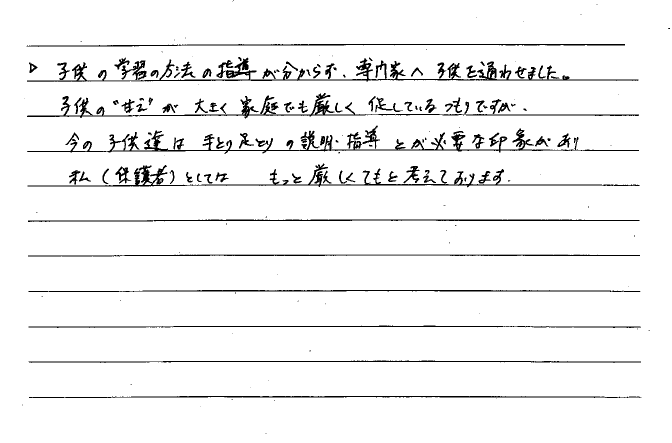 ▷ 子供の学習の方法の指導が分からず、専門家へ子供を通わせました。
子供の"甘え"が大きく家庭でも厳しく促しているつもりですが、
今の子供達は手とり足とりの説明・指導とが必要な印象があり
私(保護者)としては もっと厳しくてもと考えております.